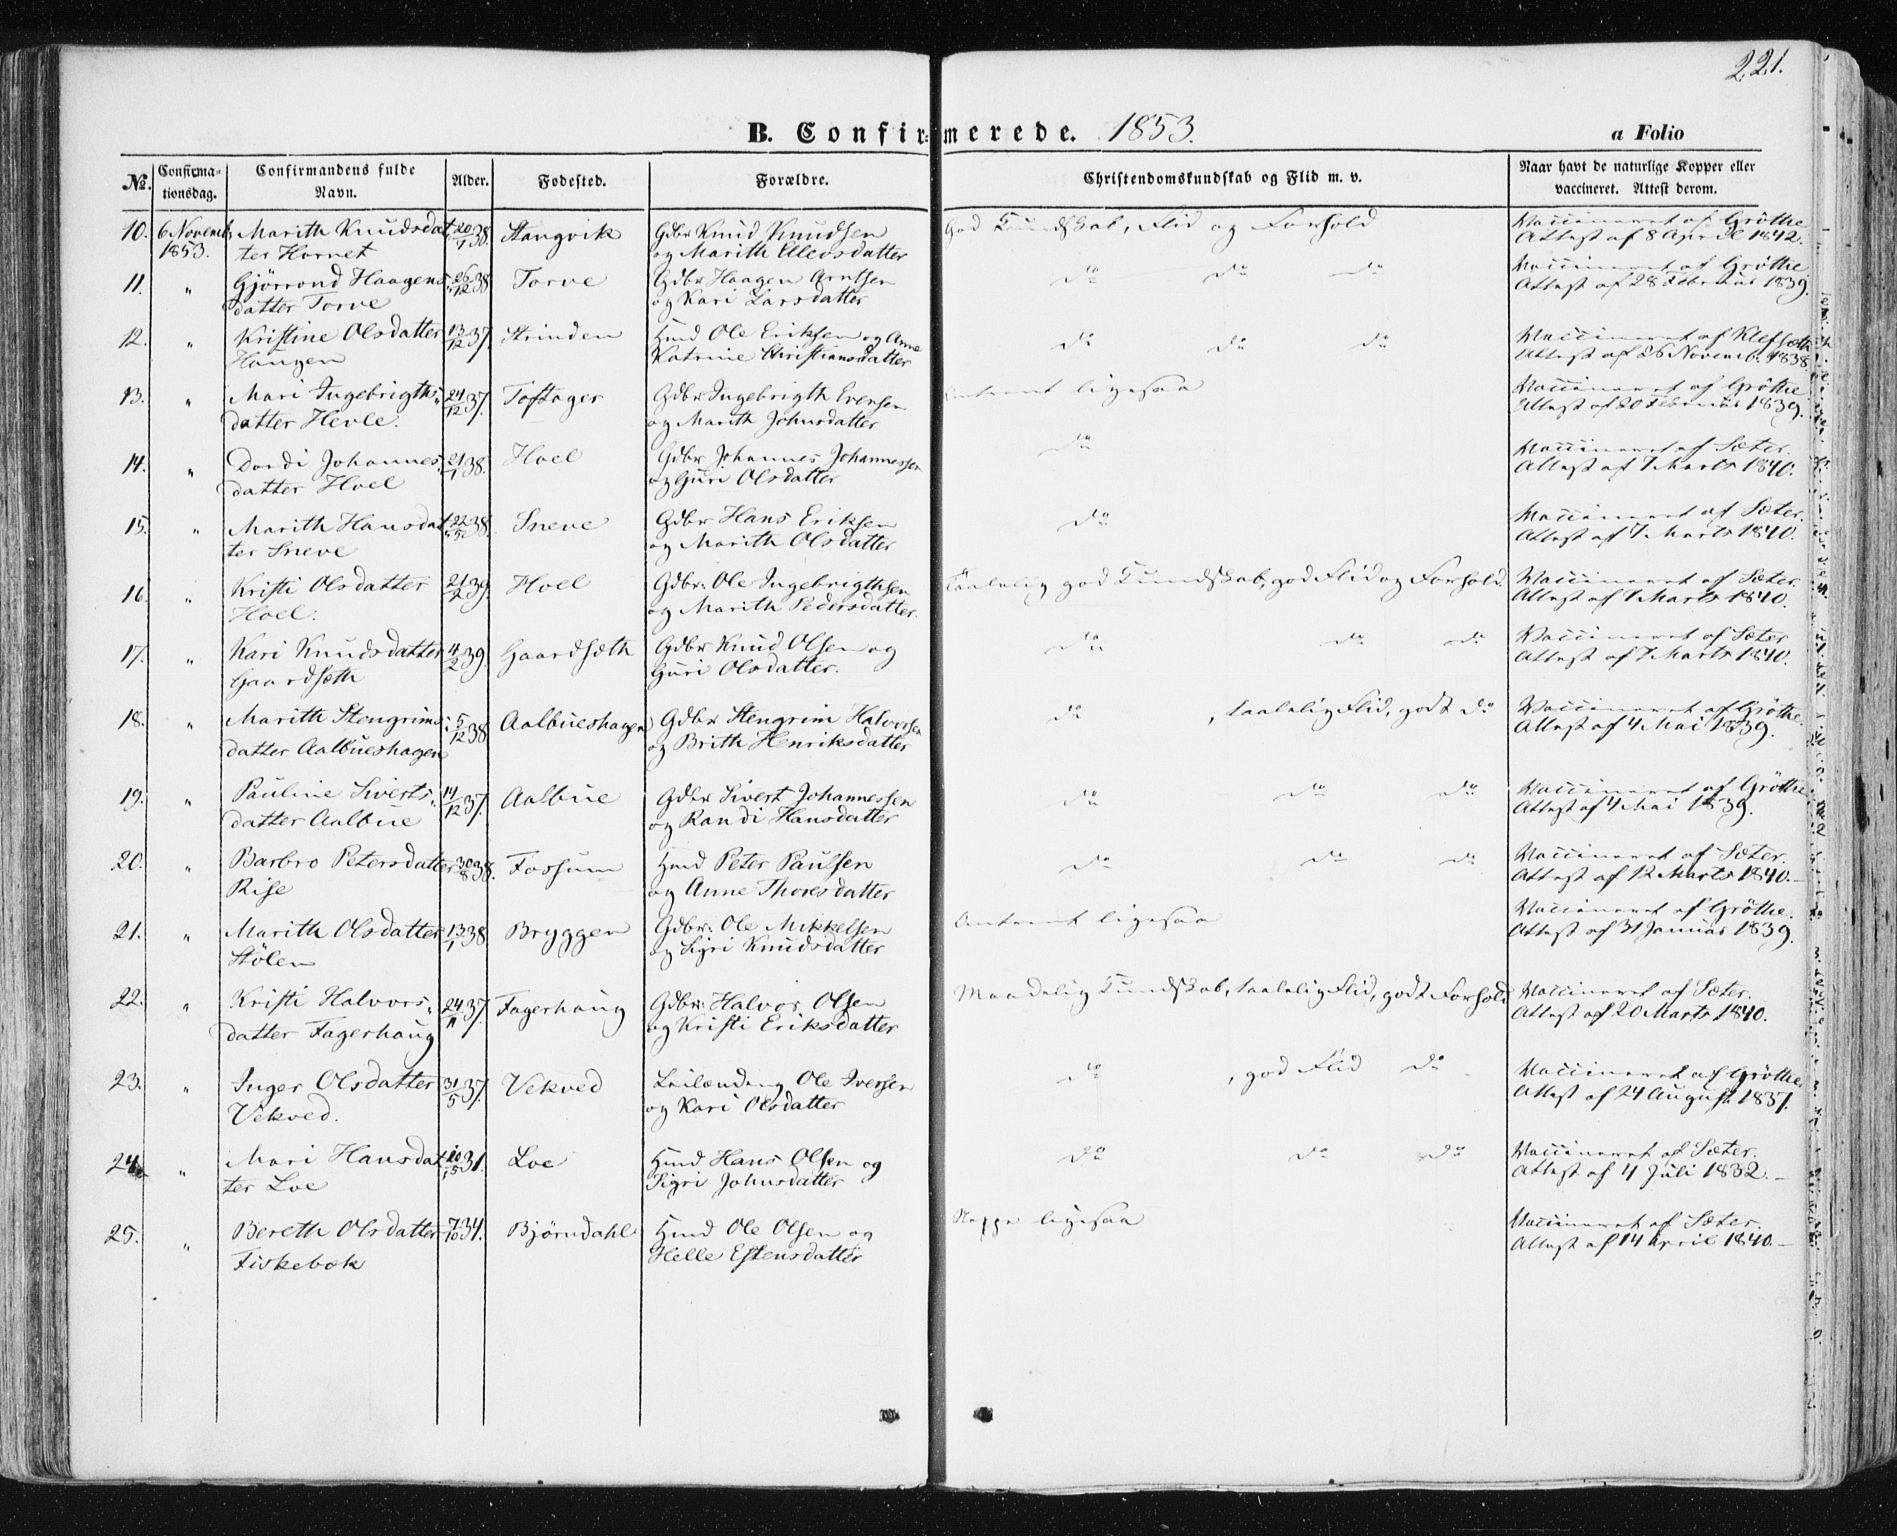 221.
B. Confirmerede. 1853.
a Folio
No. Confirmationsdag. Confirmandens fulde Navn. Alder. Fødested. Forældre. Christendomskundskab og Flid m. v. Naar havt de naturlige Kopper eller vaccineret. Attest derom.
10. 6 Novemb. Marith Knudsdat- 20/1 38. Stangvik Gdbr Knud Knudsen God Kundskab, Flid og Forhold Vaccineret af Gröthe
1853. ter Hornet og Marith Ellevsdatter Attest af 8 April 1842.
11. " Gjörrond Haagens- 26/12 38 Torve Gdbr Haagen Arntsen do do do Vaccineret af Gröthe
datter Torve og Kari Larsdatter Attest af 28 Februar 1839.
12. " Kristine Olsdatter 13/12 37. Strinden Hmd Ole Eriksen og Anne do do do Vaccineret af
Haugen Katrine Christiansdatter Attest af 26 Novemb. 1838
13. " Mari Ingebrigths- 24/12 37. Toftager Gdbr Ingebrigth Evensen Omtrent ligesaa Vaccineret af Gröthe
datter Hevle. og Marith Johnsdatter Attest af 20 Februar 1839.
14. " Dordi Johannes- 21/1 38. Hoel Gdbr Johannes Johannessen do Vaccineret af Sæter.
datter Hoel og Guri Olsdatter Attest af 7 Marts 1840.
15. " Marith Hansdat- 22/5 38. Sneve Gdbr Hans Eriksen do Vaccineret af Sæter.
ter Sneve og Marith Olsdatter Attest af 7 Marts 1840.
16. " Kristi Olsdatter 21/2 39. Hoel Gdbr: Ole Ingebrigthsen Taalelig god Kundskab, god Flid og Forhold. Vaccineret af Sæter.
Hoel. og Marith Pedersdatter. Attest af 7 Marts 1840.
17. " Kari Knudsdatter 4/2 39. Gaardsæth Gdbr Knud Olsen og do do do Vaccineret af Sæter
Gaardsæth Guri Olsdatter. Attest af 7 Marts 1840.
18. " Marith Stengrims- 5/12 38. Aalbueshagen Gdbr Stengrim Halvorsen do , taalelig Flid, godt do Vaccineret af Gröthe.
datter Aalbueshagen og Brith Henriksdatter Attest af 4 Mai 1839.
19. " Pauline Siverts- 14/12 37. Aalbue Gdbr Sivert Johannessen do do do Vaccineret af Gröthe
datter Aalbue og Randi Hansdatter Attest af 4 Mai 1839.
20. " Barbro Petersdatter 30/8 38. Fossum Hmd Peter Paulsen do do do Vaccineret af Sæter.
Rise og Anne Thoresdatter Attest af 12 Marts 1840.
21. " Marith Olsdatter 13/1 38. Bryggen Gdbr: Ole Mikkelsen Omtrent ligesaa Vaccineret af Gröthe.
Stölen og Sigri Knudsdatter Attest af 31 Januar 1839.
22. " Kristi Halvors- 24/11 37. Fagerhaug Gdbr: Halvor Olsen Maadelig Kundskab, taalelig Flid, godt Forhold Vaccineret af Sæter.
datter Fagerhaug og Kristi Eriksdatter Attest af 20 Marts 1840.
23. " Inger Olsdatter 31/5 37. Vekved Leilænding Ole Iversen do , god Flid do Vaccineret af Gröthe
Vekved. og Kari Olsdatter Attest af 24 August 1837.
24. " Mari Hansdat- 10/5 31. Loe Hmd Hans Olsen og do do do Vaccineret af Sæter.
ter Loe Sigri Johnsdatter Attest af 4 Juli 1832.
25. " Bereth Olsdatter 7/10 34. Björndahl Hmd Ole Olsen og Neppe ligesaa Vaccineret af Sæter.
Fiskebæk Helle Estensdatter Attest af 14 April 1840.